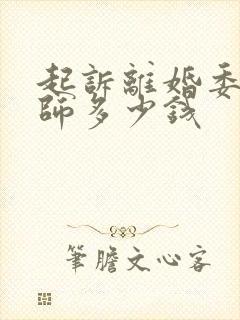 起訴離婚委
師多少钱
筆膽文心客